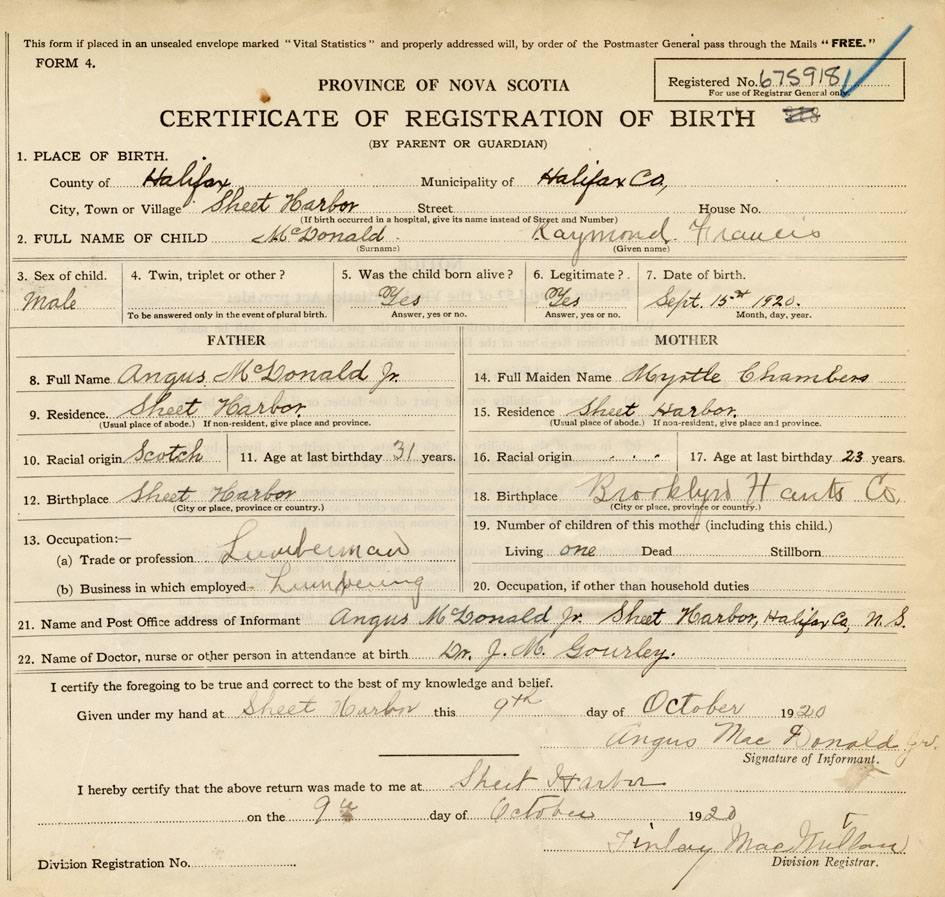 This form if placed in an unsealed envelope marked "Vital Statistics" and properly addressed will, by order of the Postmaster General pass through the Mails "FREE."
FORM 4.
Registered No. 675918
For use of Registrar General only.
PROVINCE OF NOVA SCOTIA
CERTIFICATE OF REGISTRATION OF BIRTH
(BY PARENT OR GUARDIAN)
1. PLACE OF BIRTH.
County of Halifax Municipality of Halifax Co,
City, Town or Village Sheet Harbor Street House No.
(If birth occurred in a hospital, give its name instead of Street and Number)
2. FULL NAME OF CHILD McDonald. Raymond Francis
(Surname) (Given name)
3. Sex of child. 4. Twin, triplet or other? 5. Was the child born alive? 6. Legitimate? 7. Date of birth.
Male Yes Yes Sept. 15th 1920.
To be answered only in the event of plural birth. Answer, yes or no. Answer, yes or no. Month, day, year.
FATHER
8. Full Name Angus McDonald Jr.
9. Residence. Sheet Harbor.
(Usual place of abode.) If non-resident, give place and province.
10. Racial origin Scotch 11. Age at last birthday 31 years.
12. Birthplace Sheet Harbor
(City or place, province or country.)
13. Occupation:—
(a) Trade or profession Lumberman
(b) Business in which employed Lumbering
MOTHER
14. Full Maiden Name Myrtle Chambers
15. Residence Sheet Harbor.
(Usual place of abode.) If non-resident, give place and province.
16. Racial origin 17. Age at last birthday 23 years.
18. Birthplace Brooklyn Hants Co,
(City or place, province or country.)
19. Number of children of this mother (including this child.)
Living one Dead Stillborn
20. Occupation, if other than household duties
21. Name and Post Office address of Informant Angus McDonald Jr. Sheet Harbor, Halifax Co, N.S.
22. Name of Doctor, nurse or other person in attendance at birth Dr. J. M. Gourley.
I certify the foregoing to be true and correct to the best of my knowledge and belief.
Given under my hand at Sheet Harbor this 9th day of October 1920
Angus Mac Donald Jr.
Signature of Informant.
I hereby certify that the above return was made to me at Sheet Harbor
on the 9th day of October 1920
Finlay MacMillan
Division Registrar.
Division Registration No.